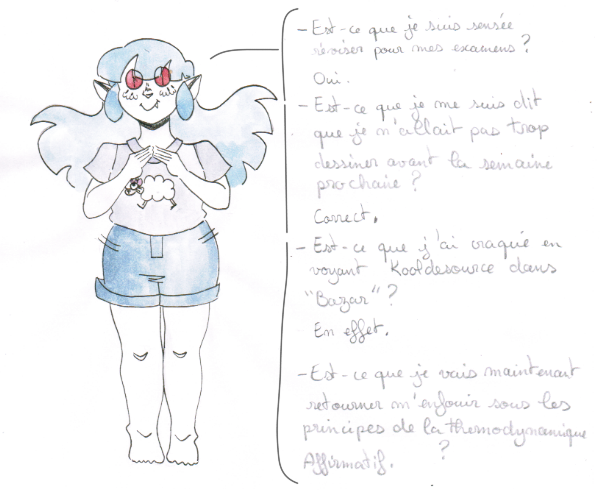 - Est-ce que je suis sensée
réviser pour mes examens ?
Oui.
- Est-ce que je me suis dit
que je n'allait pas trop
dessiner avant la semaine
prochaine ?
Correct.
- Est-ce que j'ai craqué en
voyant Kooldesource dans
"Bazar" ?
En effet.
- Est-ce que je vais maintenant
retourner m'enfouir sous les
principes de la thermodynamique
?
Affirmatif.